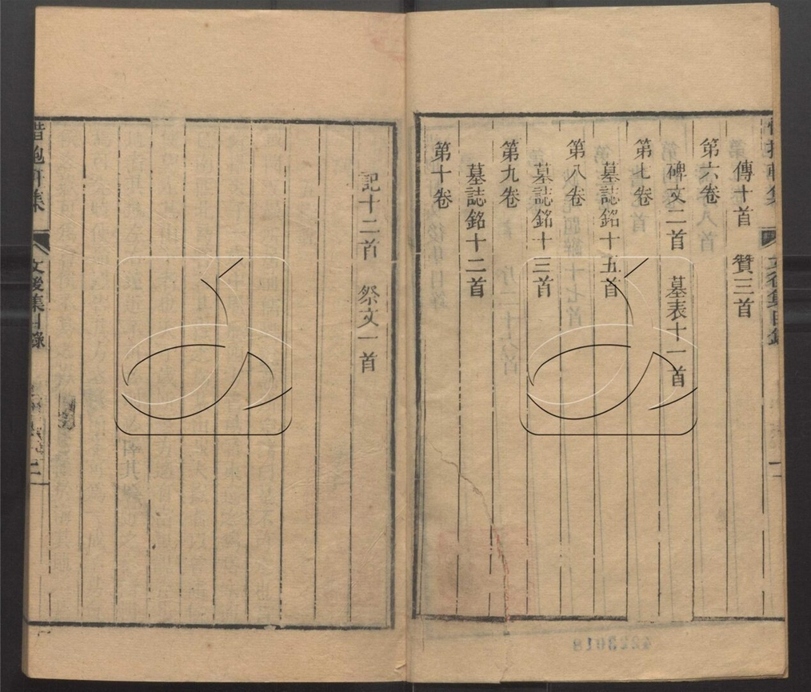 傳十首　贊三首
第六卷
碑文二首　墓表十一首
第七卷
墓誌銘十五首
第八卷
墓誌銘十三首
第九卷
墓誌銘十二首
第十卷
記十二首　祭文一首
惜抱軒集　文後集目錄　二